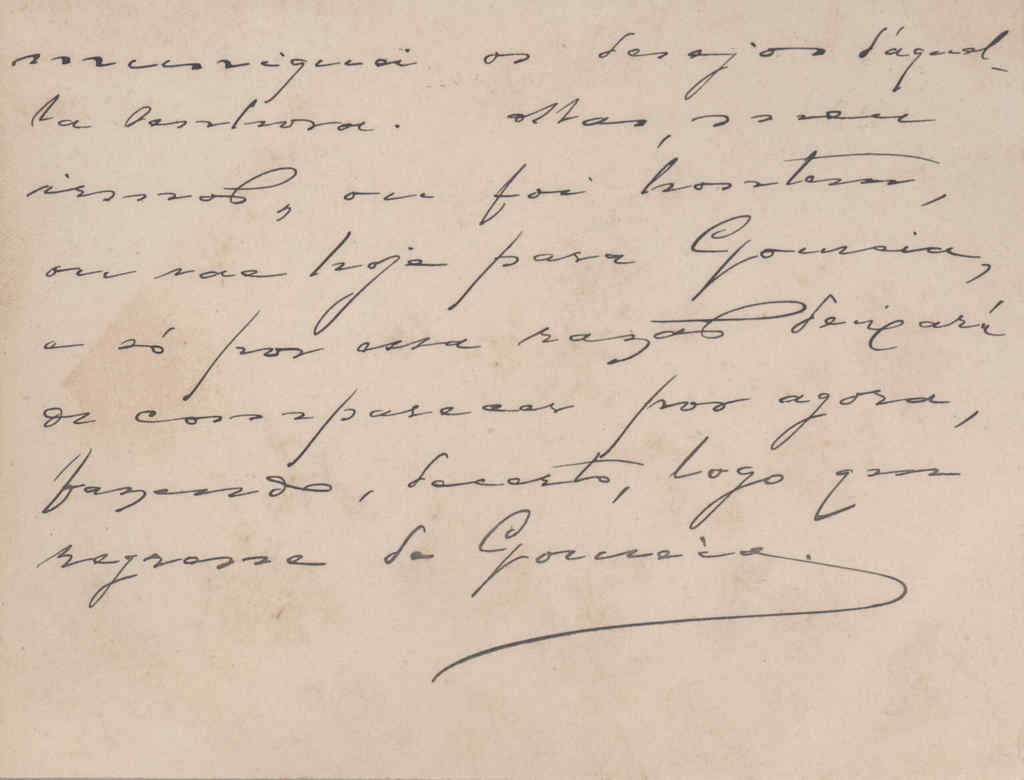 muniquei os desejos d'aquel-
la senhora. Mas, o meu
irmão, ou foi hontem,
ou vae hoje para Gouveia,
e só por essa razão deixará
de comparecer por agora,
fazendo, decerto, logo que
regresse de Gouveia.